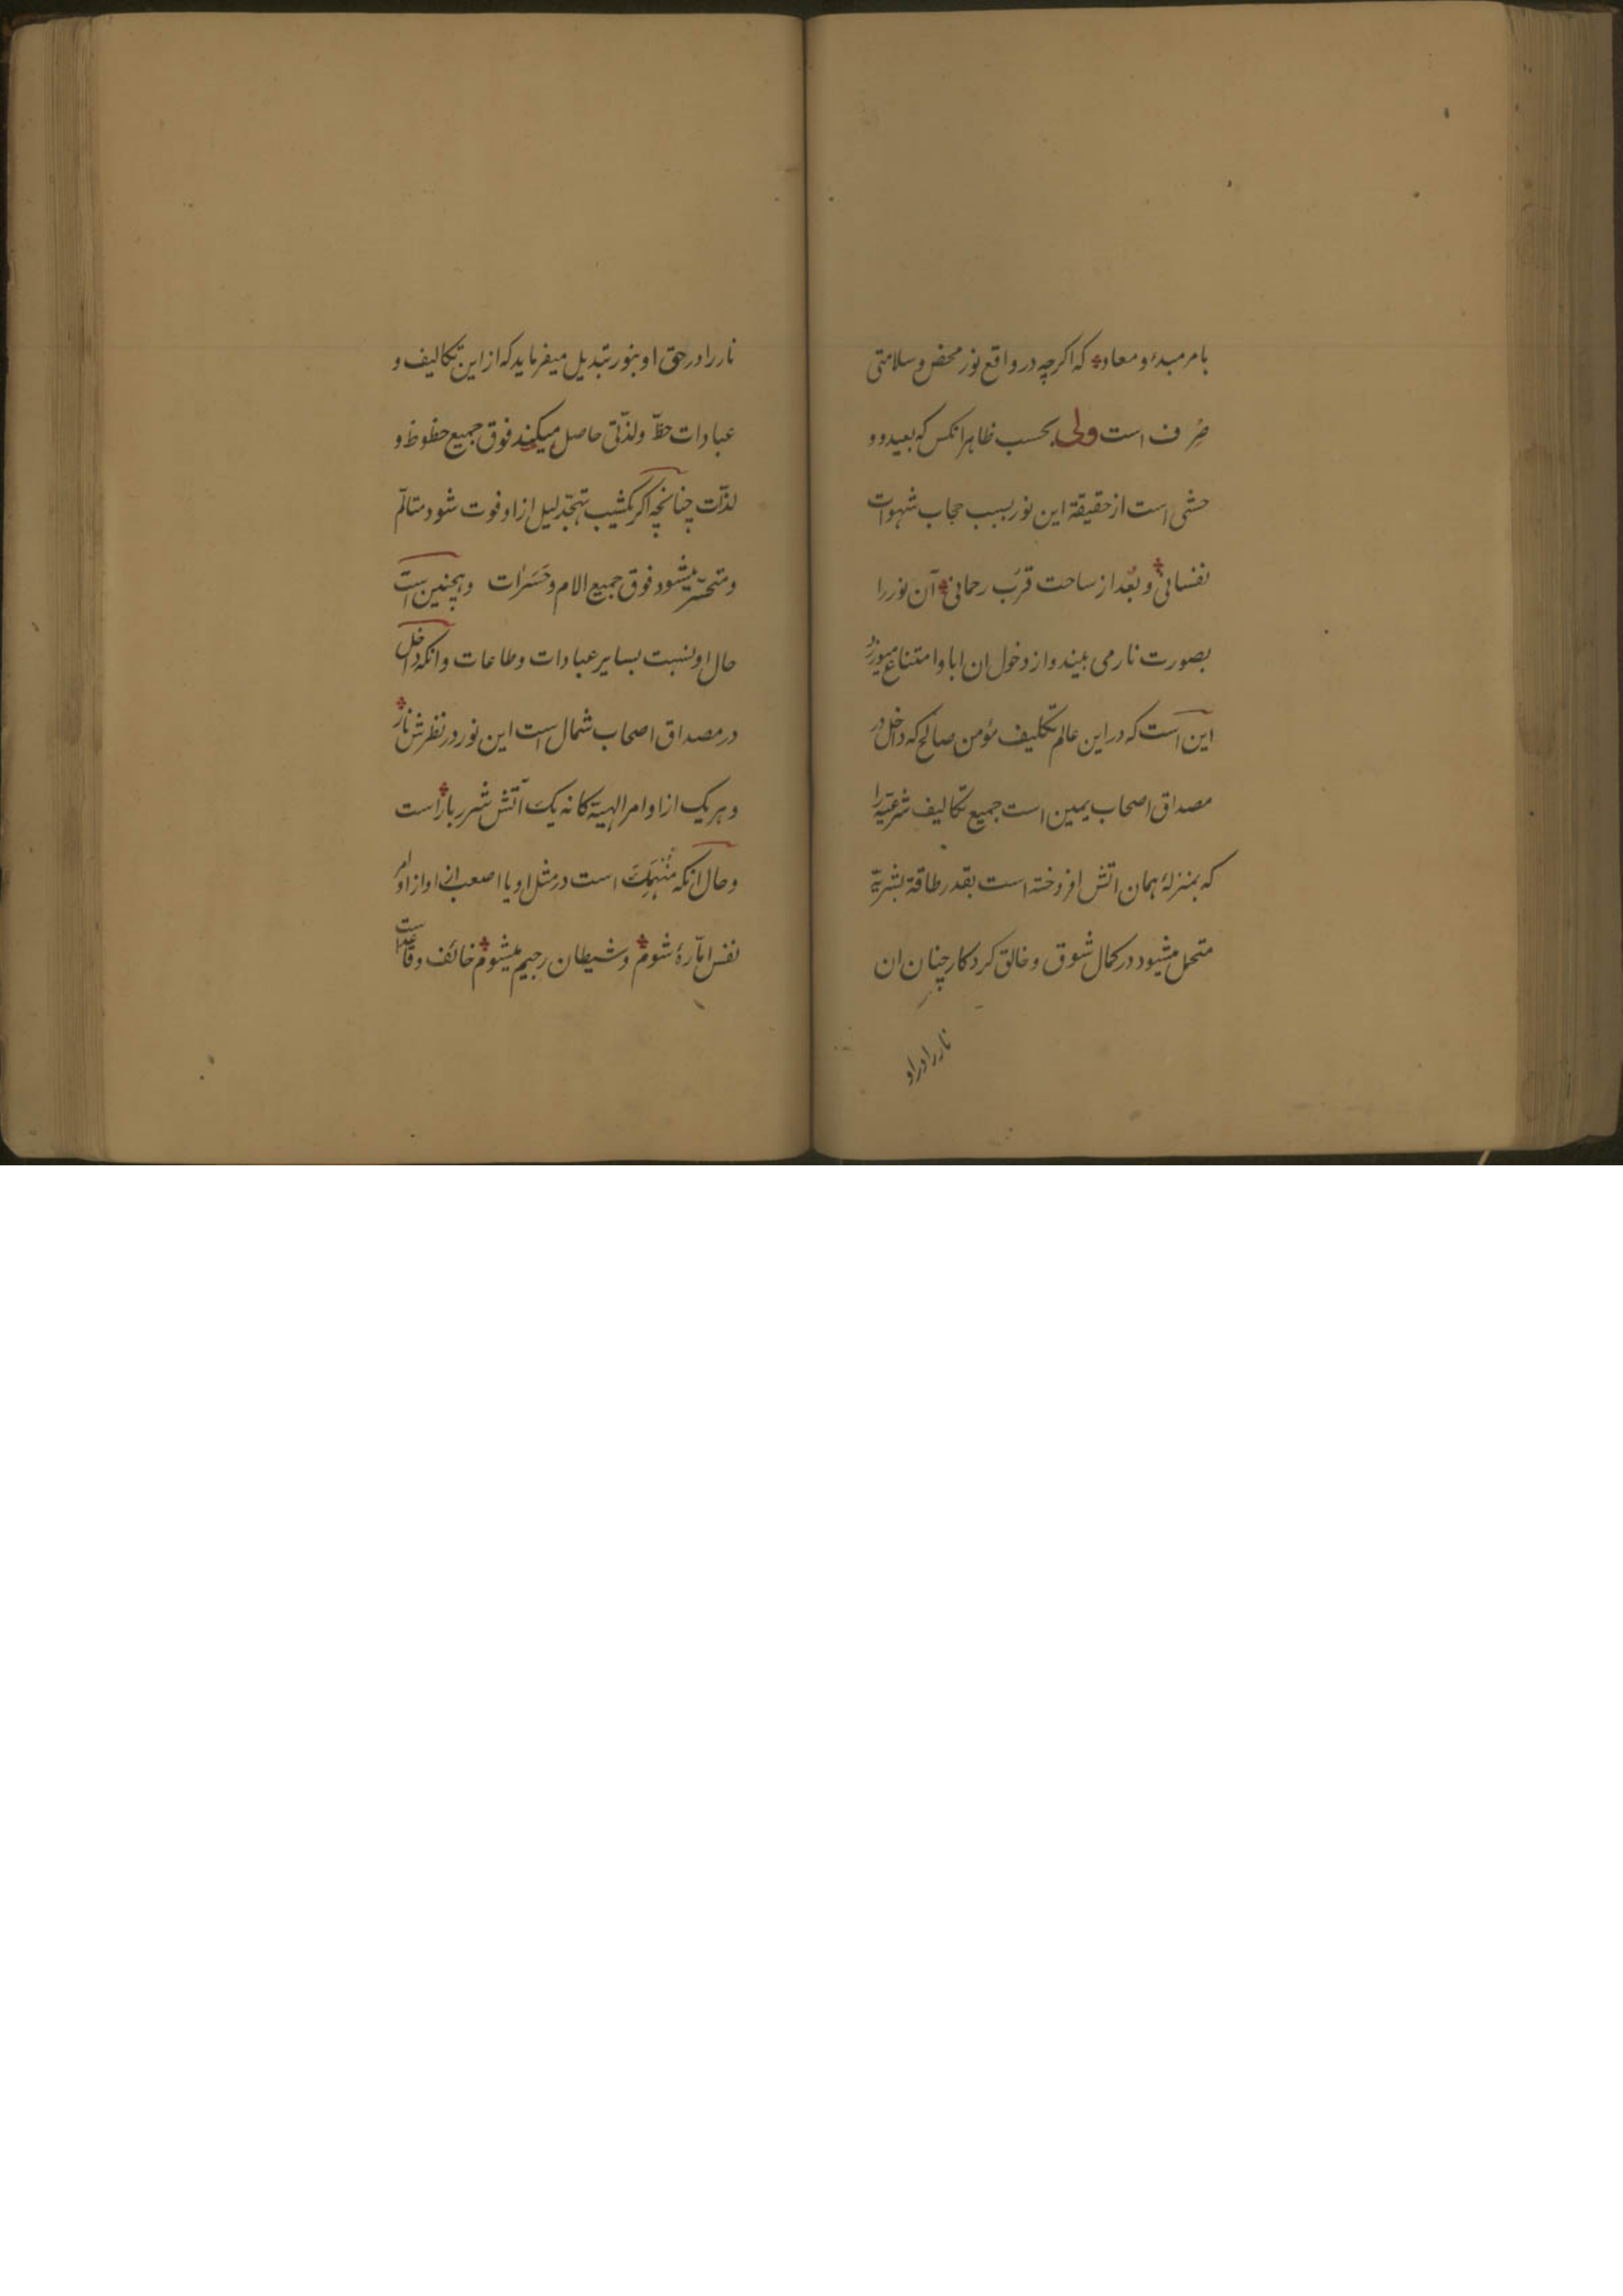 بامر مبدء و معاد که اکرچه در واقع نور محض و سلامتی
صِرف است ولی بحسب ظاهر انکس که بعید و و
حشی است از حقیقة این نور بسبب حجاب شهوات
نفسانی و بُعد از ساحت قرب رحمانی آن نور را
بصورت نار می بیند و از دخول ان ابا و امتناع میورزد
این است که در این عالم تکلیف مؤمن صالح که داخل در
مصداق اصحاب یمین است جمیع تکالیف شرعیّه را
که بمنزلهٔ همان اتش افروخته است بقدر طاقة بشریّة
متحمل میشود در کمال شوق و خالق کردکار چنان ان
نار را در
نار را در حق او بنور تبدیل میفرماید که از این تکالیف و
عبادات حظّ و لذّتی حاصل میکند فوق جمیع حظوظ و
لذّت چنانچه اکر یکشب تهجّد لیل از او فوت شود متالّم
و متحسّر میشود فوق جمیع الام و حَسَرات و همچنین است
حال او نسبت بسایر عبادات و طاعات و انکه داخل
در مصداق اصحاب شمال است این نور در نظرش نار
و هر یک از اوامر الهیّة کانه یک آتش شرر بار است
و حال انکه منهمک است در مثل او یا اصعب از او از اوامر
نفس امّارهٔ شوم و شیطان رجیم میشوم خائف و